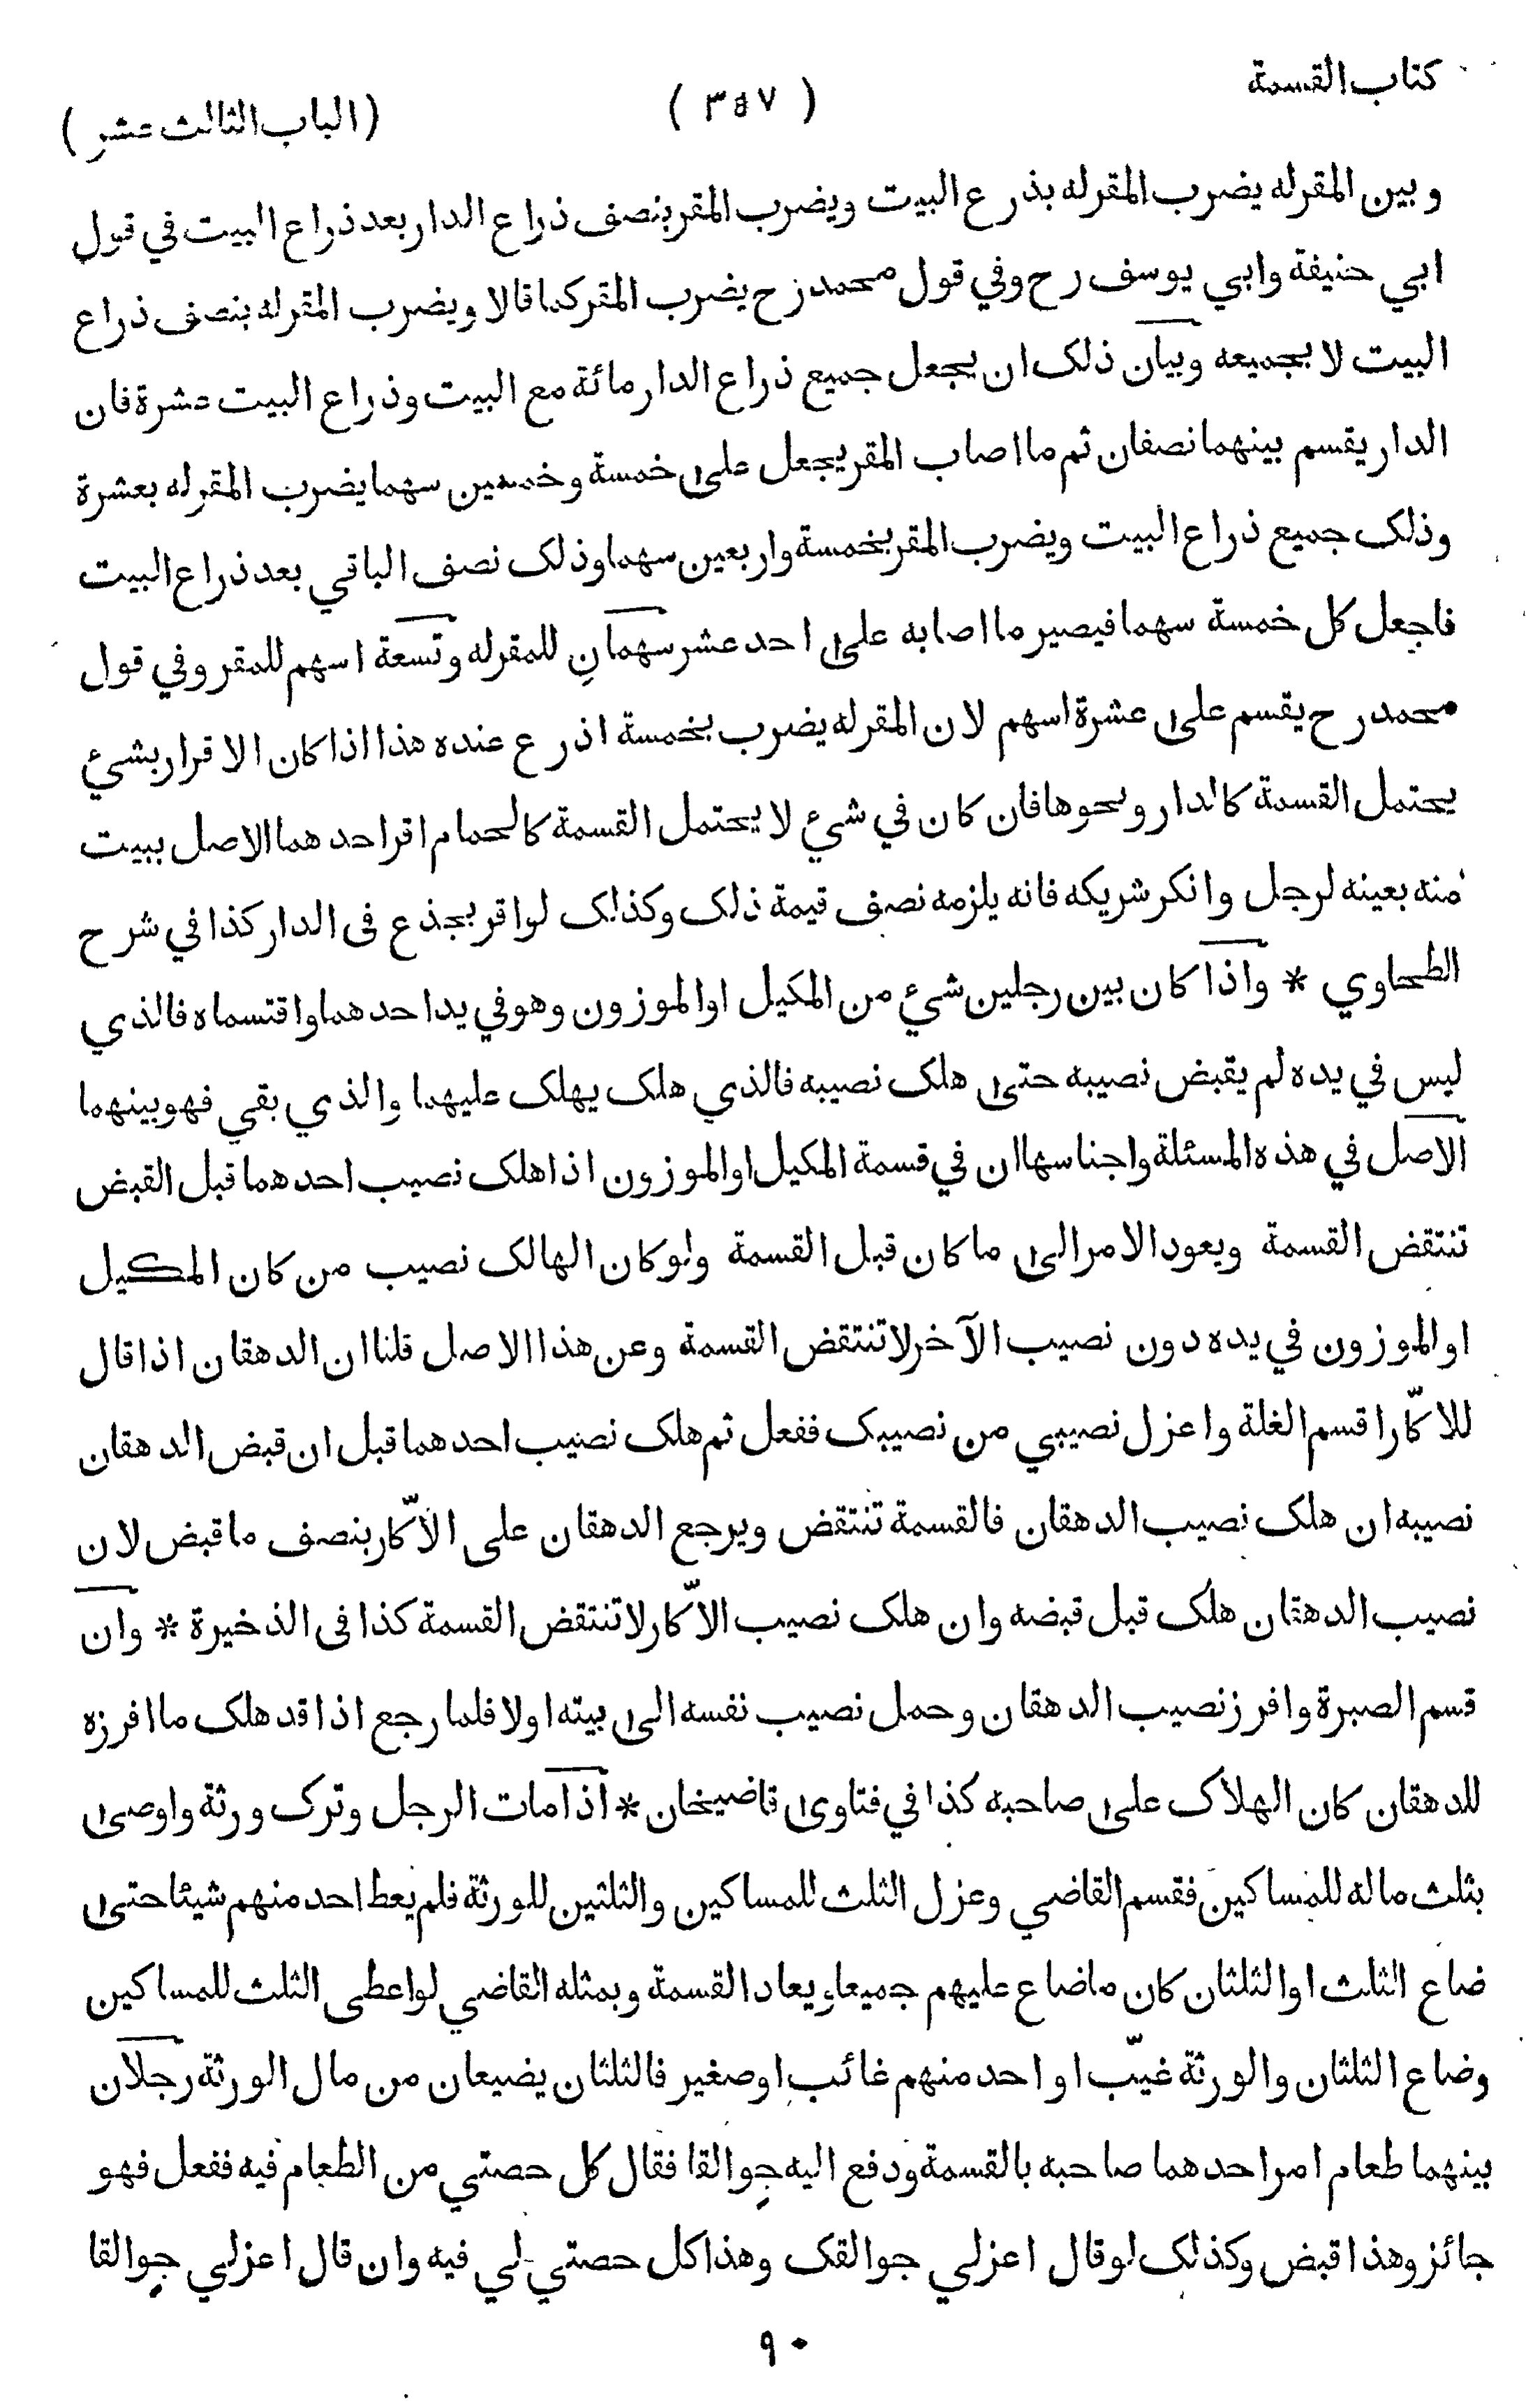 كتاب القسمة
( ٣٥٧ )
( الباب الثالث عشر )
وبين المقرله يضرب المقرله بذرع البيت ويضرب المقر بنصف ذراع الدار بعد ذراع البيت في قول
ابي حنيفة وابي يوسف رح وفي قول محمد رح يضرب المقر كما قالا ويضرب المقرله بنصف ذراع
البيت لا بجميعه وبيان ذلک ان يجعل جميع ذراع الدار مائة مع البيت وذراع البيت عشرة فان
الدار يقسم بينهما نصفان ثم ما اصاب المقر يجعل على خمسة وخمسين سهما يضرب المقرله بعشرة
وذلک جميع ذراع البيت ويضرب المقر بخمسة واربعين سهما وذلک نصف الباقي بعد ذراع البيت
فاجعل كل خمسة سهما فيصير ما اصابه على احد عشر سهمان للمقرله وتسعة اسهم للمقر وفي قول
محمد رح يقسم على عشرة اسهم لان المقرله يضرب بخمسة اذرع عنده هذا اذا كان الاقرار بشئ
يحتمل القسمة كالدار ونحوها فان كان في شئ لا يحتمل القسمة كالحمام اقر احدهما الاصل ببيت
منه بعينه لرجل وانكر شريكه فانه يلزمه نصف قيمة ذلک وكذلک لو اقر بجذع فى الدار كذا في شرح
الطحاوي * واذا كان بين رجلين شئ من المكيل او الموزون وهو في يد احدهما واقتسماه فالذي
ليس في يده لم يقبض نصيبه حتى هلک نصيبه فالذي هلک يهلک عليهما والذي بقي فهو بينهما
الاصل في هذه المسئلة واجناسها ان في قسمة المكيل او الموزون اذا هلک نصيب احدهما قبل القبض
تنتقض القسمة ويعود الامر الى ما كان قبل القسمة ولو كان الهالک نصيب من كان المكيل
او الموزون في يده دون نصيب الآخر لا تنتقض القسمة وعن هذا الاصل قلنا ان الدهقان اذا قال
للاكّار اقسم الغلة واعزل نصيبي من نصيبک ففعل ثم هلک نصيب احدهما قبل ان قبض الدهقان
نصيبه ان هلک نصيب الدهقان فالقسمة تنتقض ويرجع الدهقان على الاكّار بنصف ما قبض لان
نصيب الدهقان هلک قبل قبضه وان هلک نصيب الاكّار لا تنتقض القسمة كذا فى الذخيرة * وان
قسم الصبرة وافرز نصيب الدهقان وحمل نصيب نفسه الى بيته اولا فلما رجع اذا قد هلک ما افرزه
للدهقان كان الهلاک على صاحبه كذا في فتاوى قاضيخان * اذا مات الرجل وترک ورثة واوصى
بثلث ماله للمساكين فقسم القاضي وعزل الثلث للمساكين والثلثين للورثة فلم يعط احد منهم شيئا حتى
ضاع الثلث او الثلثان كان ما ضاع عليهم جميعا ويعاد القسمة وبمثله القاضي لو اعطى الثلث للمساكين
وضاع الثلثان والورثة غيّب او احد منهم غائب او صغير فالثلثان يضيعان من مال الورثة رجلان
بينهما طعام امر احدهما صاحبه بالقسمة ودفع اليه جوالقا فقال كل حصتي من الطعام فيه ففعل فهو
جائز وهذا قبض وكذلک لو قال اعزلي جوالقک وهذا كل حصتي لي فيه وان قال اعزلي جوالقا
٩٠